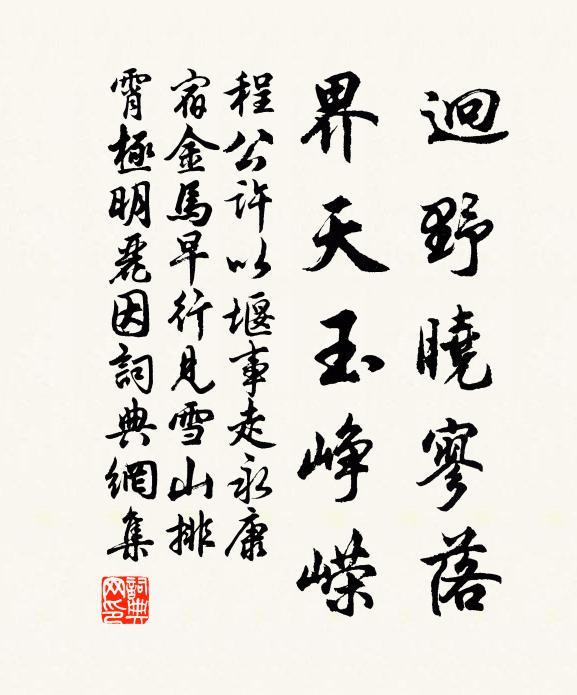 迥野曉寥落
界天玉崢嶸
程公許以堰事走永康
宿金馬早行見雪山排
霄極明麗因詞典網集
詞典網印